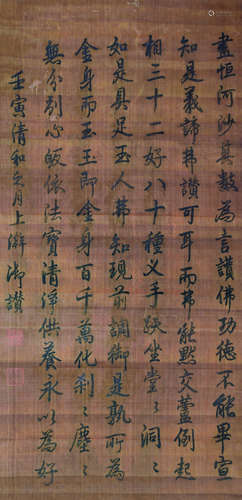 盡恒河沙異數為言讚佛功德不能畢宣
知是義諦弗讚可耳而弗能默交蘆倒起
相三十二好八十種叉手趺坐堂〻洞〻
如是具足玉人弗知現前調御是孰所為
金身而玉玉即金身百千萬化刹〻塵〻
無分別心皈依法寶清淨供養永以為好
壬寅清和之月上澣御讚